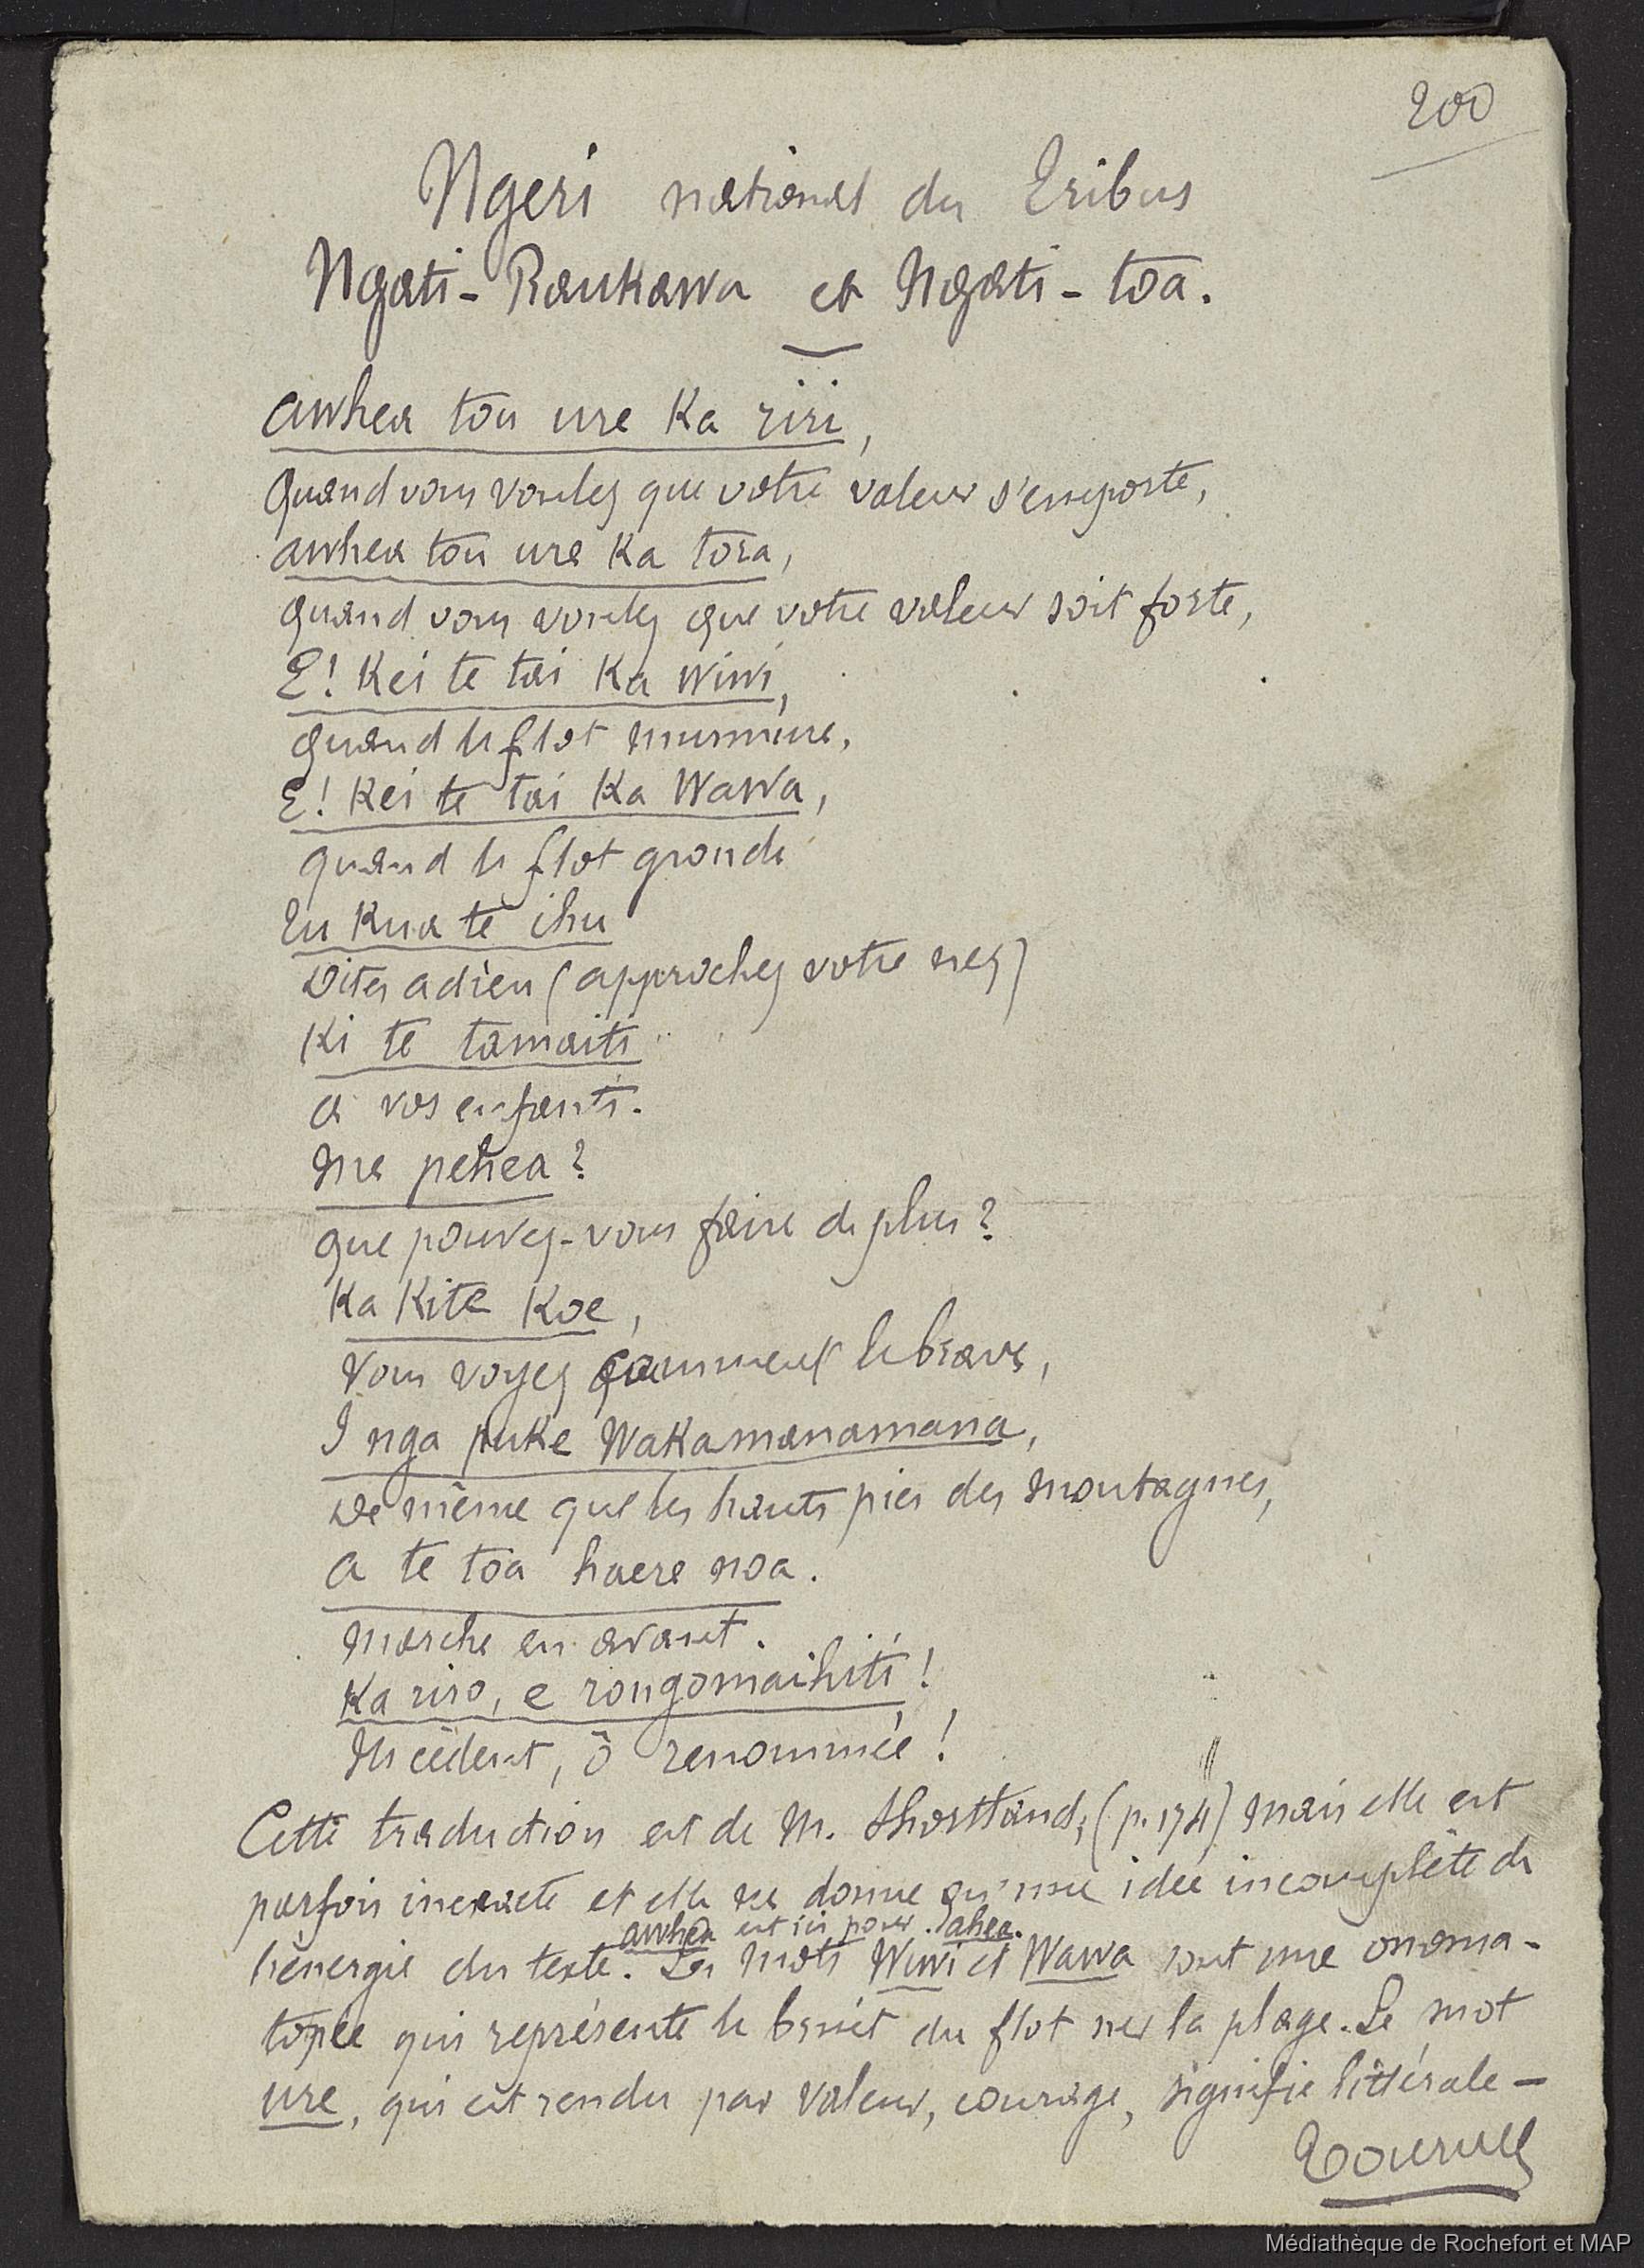 200
Ngeri national du Tribus
Ngati-Raukawa et Ngati-toa.
awhea tou ure Ka riri,
Quand vous voulez que votre valeur s'emporte,
awhea tou ure Ka tora,
quand vous voulez que votre valeur soit forte,
E! Kei te tai Ka wiwi,
quand le flot murmure,
E! Kei te tai Ka Wawa,
quand le flot gronde
Tu Kua te ihu
Dites adieu (approchez votre nez)
Ki te tamaiti
à vos enfants.
Me pehea?
que pouvez-vous faire de plus?
Ka Kite Koe,
Vous voyez comment le brave,
I nga puke Wakamanamana,
De même que les hauts pics des montagnes,
a te toa haere noa.
marche en avant.
Ka riro, e rongomaihiti!
Ils cèdent, ô renommée!
Cette traduction est de M. Shortland, (p. 174) mais elle est
parfois inexacte et elle ne donne qu'une idée incomplète de
awhea est ici pour ahea.
l'énergie du texte. Les mots Wiwi et Wawa sont une onoma-
topée qui représente le bruit du flot sur la plage. Le mot
ure, qui est rendu par valeur, courage, signifie littérale-
Tournez
Médiathèque de Rochefort et MAP